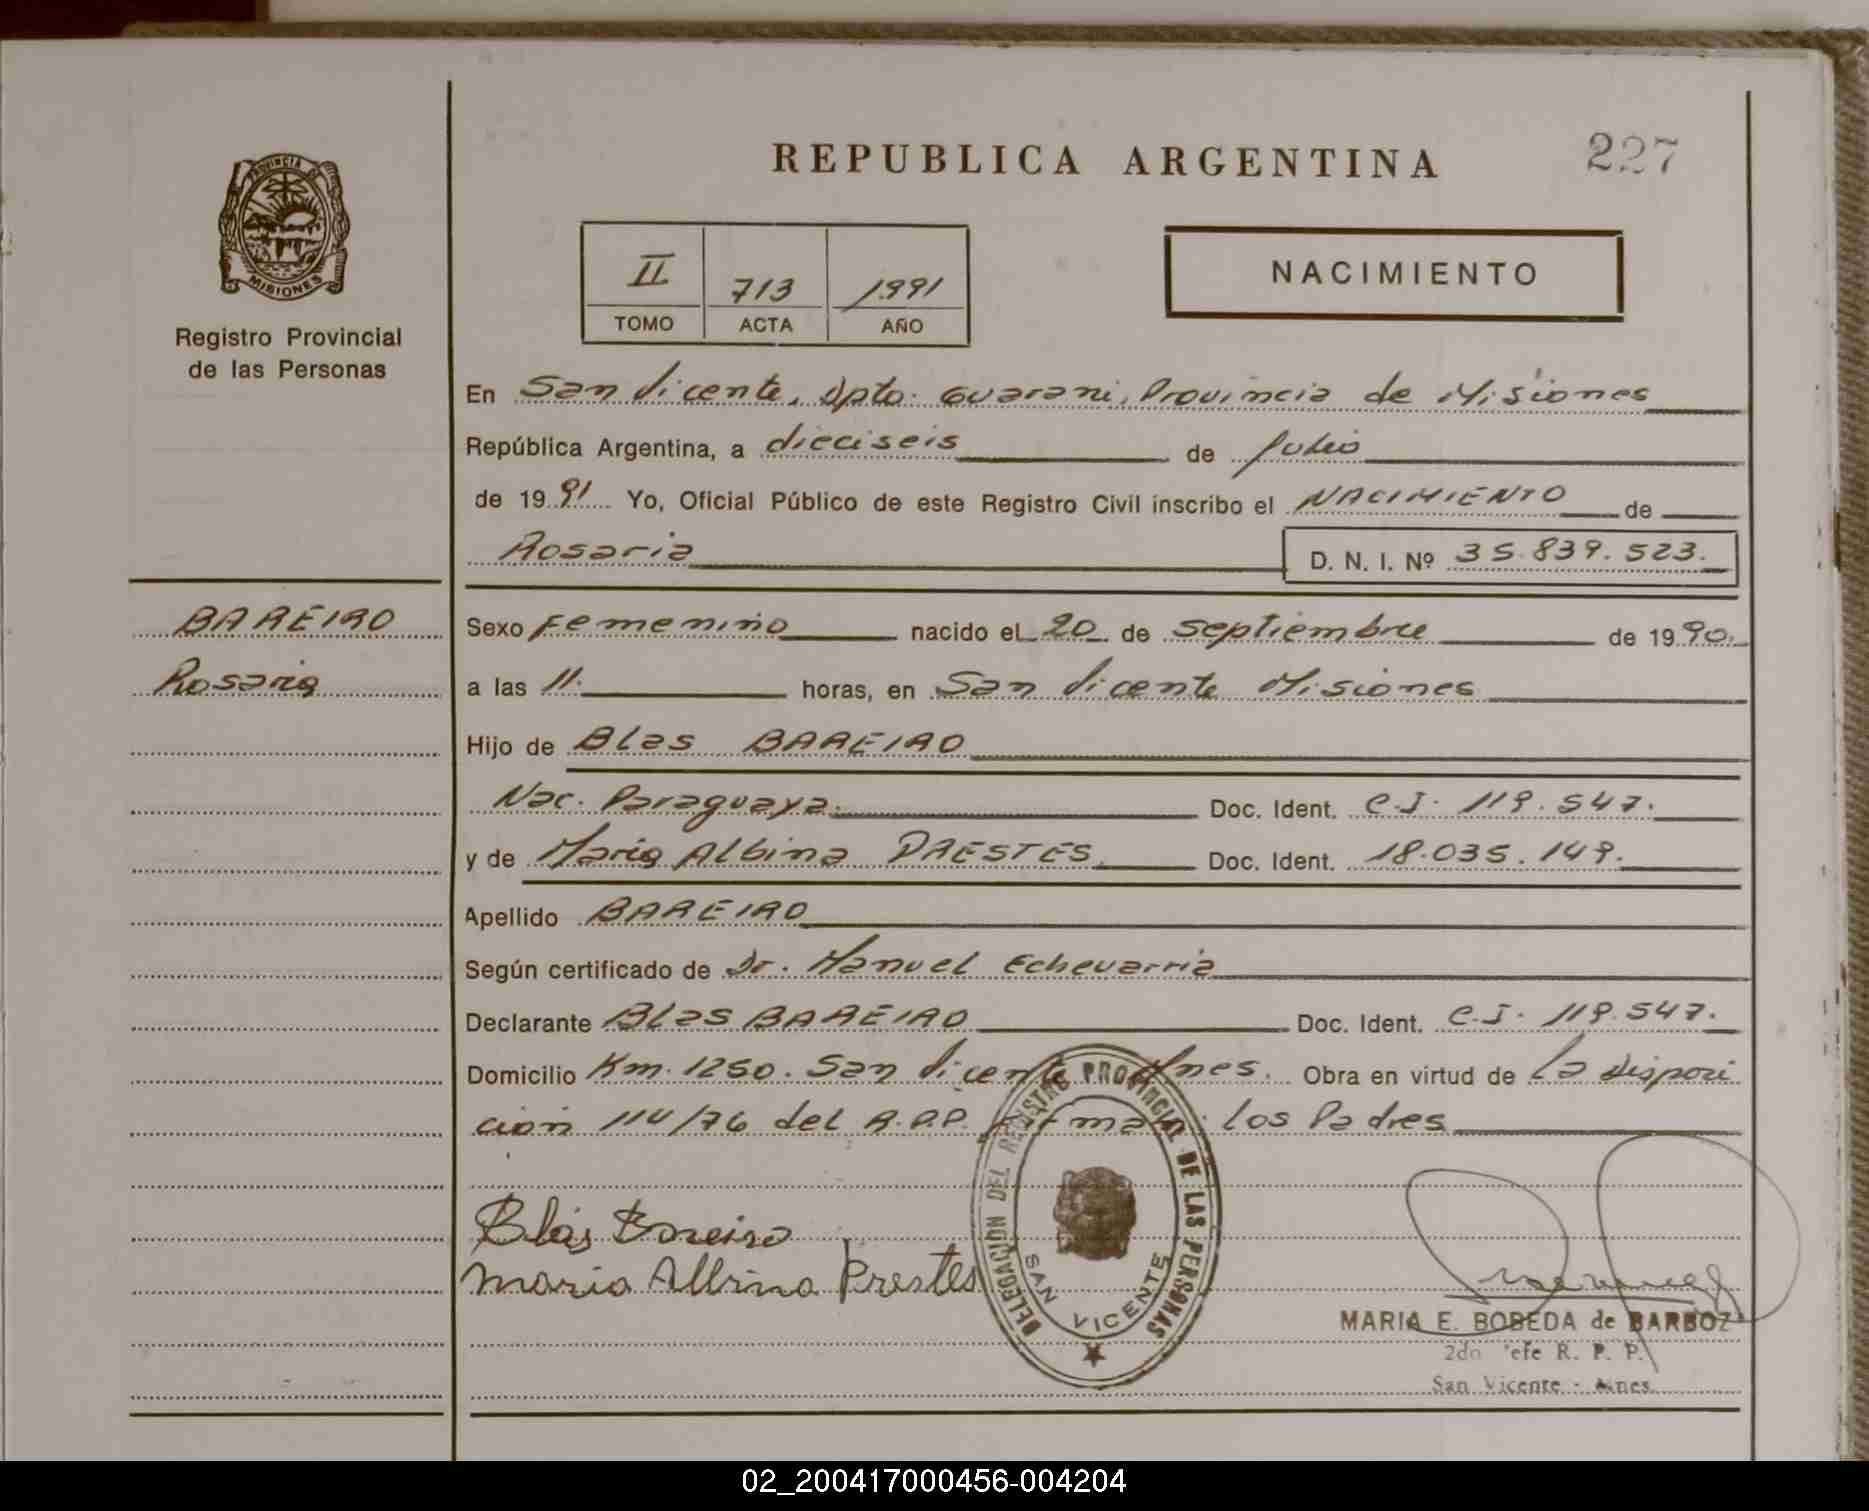 REPUBLICA ARGENTINA
227
PROVINCIA DE
MISIONES
Registro Provincial
de las Personas
II 713 1991
TOMO ACTA AÑO
NACIMIENTO
En San Vicente, Dpto: Guarani, Provincia de Misiones
República Argentina, a dieciseis de Julio
de 1991 Yo, Oficial Público de este Registro Civil inscribo el NACIMIENTO de
Rosaria D. N. I. Nº 35.839.523.
BAREIRO
Rosaria
Sexo Femenino nacido el 20 de septiembre de 1990.
a las 11. horas, en San Vicente Misiones
Hijo de Blas BAREIRO
Nac. Paraguaya. Doc. Ident. C.I. 119.547.
y de Maria Albina PRESTES. Doc. Ident. 18.035.149.
Apellido BAREIRO
Según certificado de Dr. Manuel Echevarria
Declarante Blas BAREIRO Doc. Ident. C.I. 119.547.
Domicilio Km. 1250. San Vicente Mnes. Obra en virtud de la Disposi
ción 114/76 del R.P.P. Firman: los Padres
Blás Bareiro
Maria Albina Prestes
DELEGACION DEL REGISTRO PROVINCIAL DE LAS PERSONAS
SAN VICENTE
MARIA E. BOBEDA de BARBOZ
2do efe R. P. P.
San Vicente - Mnes.
02_200417000456-004204